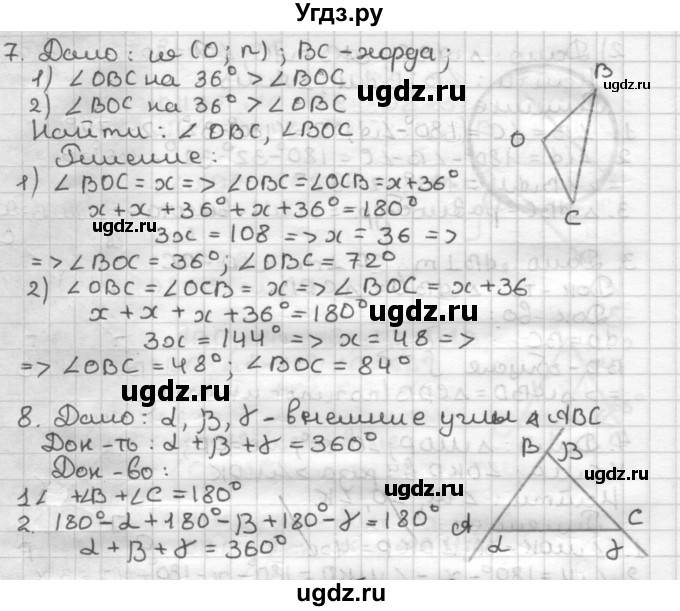 Угдз.ру
7. Дано: ω (O; r); BC - хорда;
1) ∠OBC на 36° > ∠BOC
2) ∠BOC на 36° > ∠OBC
Найти: ∠OBC, ∠BOC
Решение:
1) ∠BOC = x => ∠OBC = ∠OCB = x + 36°
x + x + 36° + x + 36° = 180°
3x = 108 => x = 36 =>
=> ∠BOC = 36°; ∠OBC = 72°
2) ∠OBC = ∠OCB = x => ∠BOC = x + 36
x + x + x + 36° = 180°
3x = 144° => x = 48 =>
=> ∠OBC = 48°; ∠BOC = 84°
B
O
C
8. Дано: α, β, γ - внешние углы △ ABC
Док-ть: α + β + γ = 360°
Док-во:
1∠ +∠B + ∠C = 180°
2. 180° - α + 180° - β + 180° - γ = 180°
α + β + γ = 360°
B β
A C
α γ
ugdz.ru
ugdz.ru
ugdz.ru
ugdz.ru
ugdz.ru
ugdz.ru
ugdz.ru
ugdz.ru